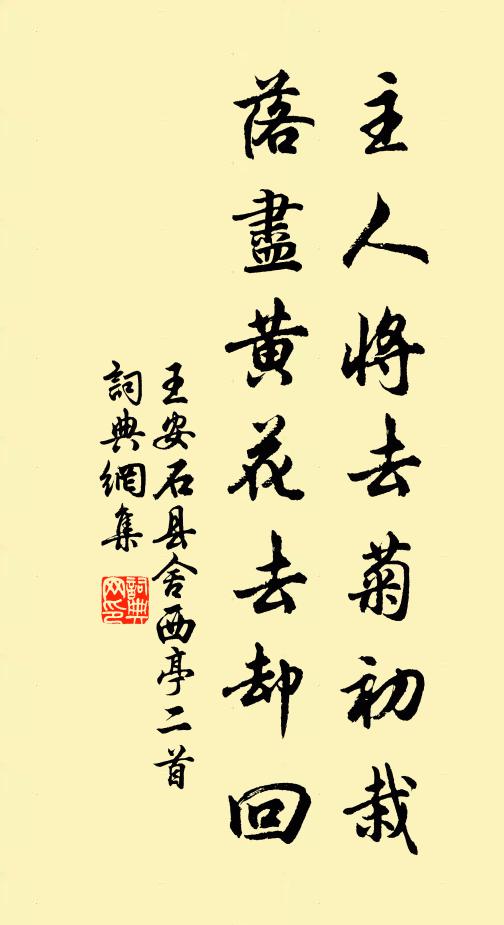 主人將去菊初栽
落盡黄花去却回
王安石县舍西亭二首
詞典網集